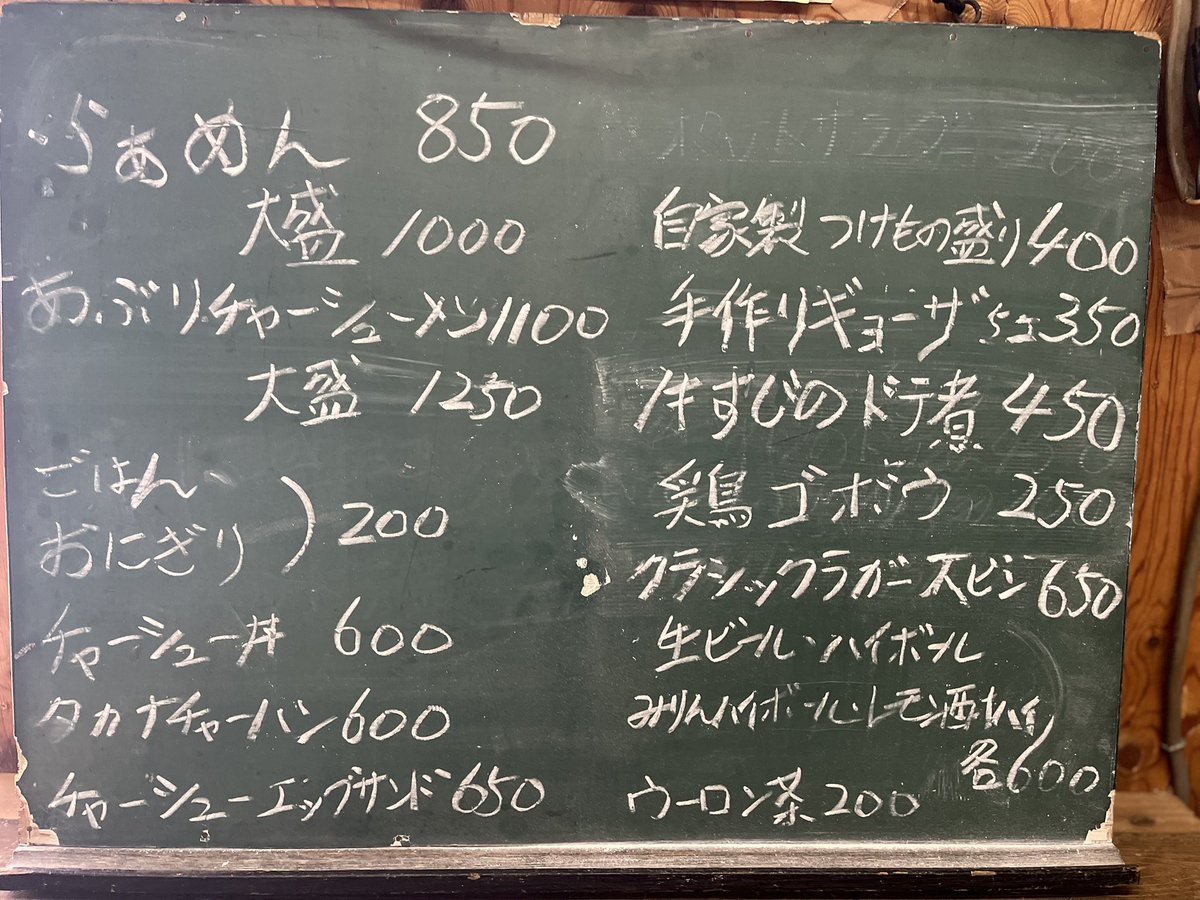 らぁめん 850
大盛 1000
あぶりチャーシューメン 1100
大盛 1250
ごはん
おにぎり ) 200
チャーシュー丼 600
タカナチャーハン 600
チャーシューエッグサンド 650
自家製 つけもの盛り 400
手作りギョーザ 5コ 350
牛すじのドテ煮 450
鶏ゴボウ 250
クラシックラガー 大ビン 650
生ビール・ハイボール
みりんハイボール・レモン酎ハイ
各600
ウーロン茶 200